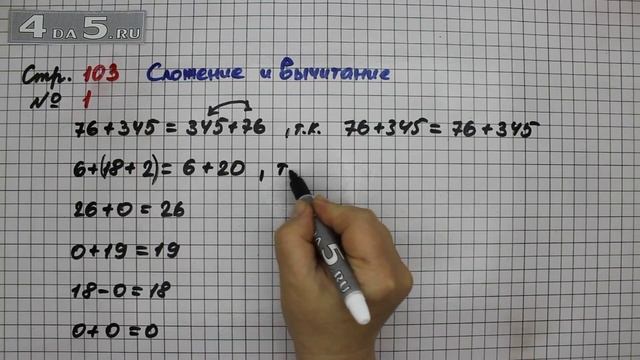 4 ДА 5.RU
Стр. 103 Сложение и вычитание
№ 1
76+345 = 345+76 , т.к. 76+345 = 76+345
6+(18+2) = 6+20 , т
26+0 = 26
0+19 = 19
18-0 = 18
0+0 = 0
ДА 5.RU